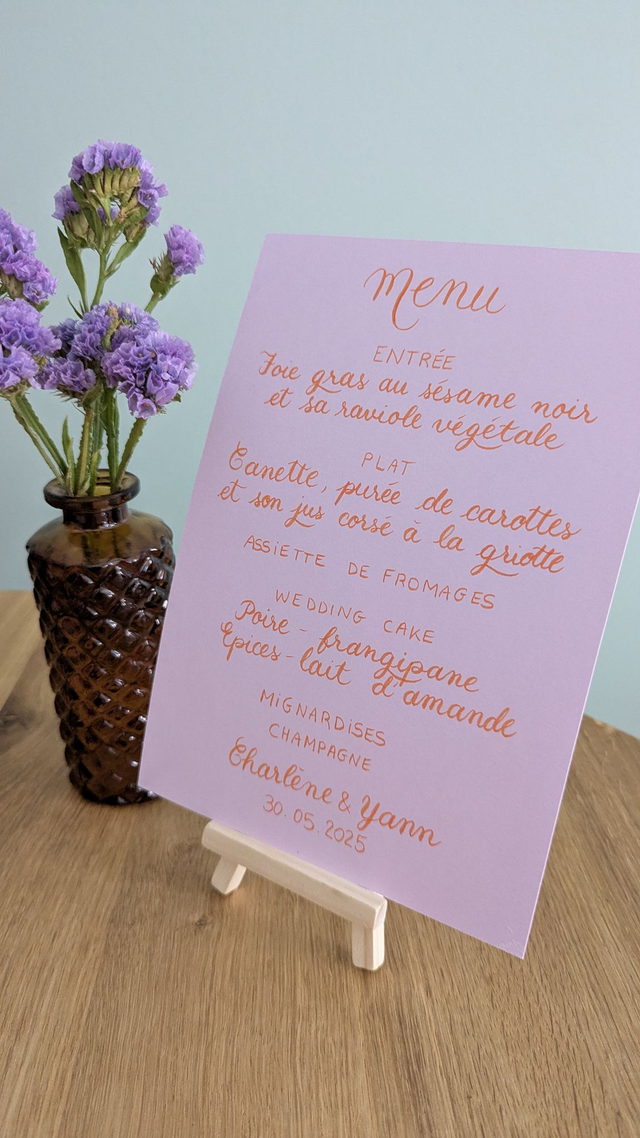 Menu
ENTRÉE
Foie gras au sésame noir
et sa raviole végétale
PLAT
Canette, purée de carottes
et son jus corsé à la griotte
ASSIETTE DE FROMAGES
WEDDING CAKE
Poire - frangipane
Épices - lait d'amande
MIGNARDISES
CHAMPAGNE
Charlène & Yann
30.05.2025